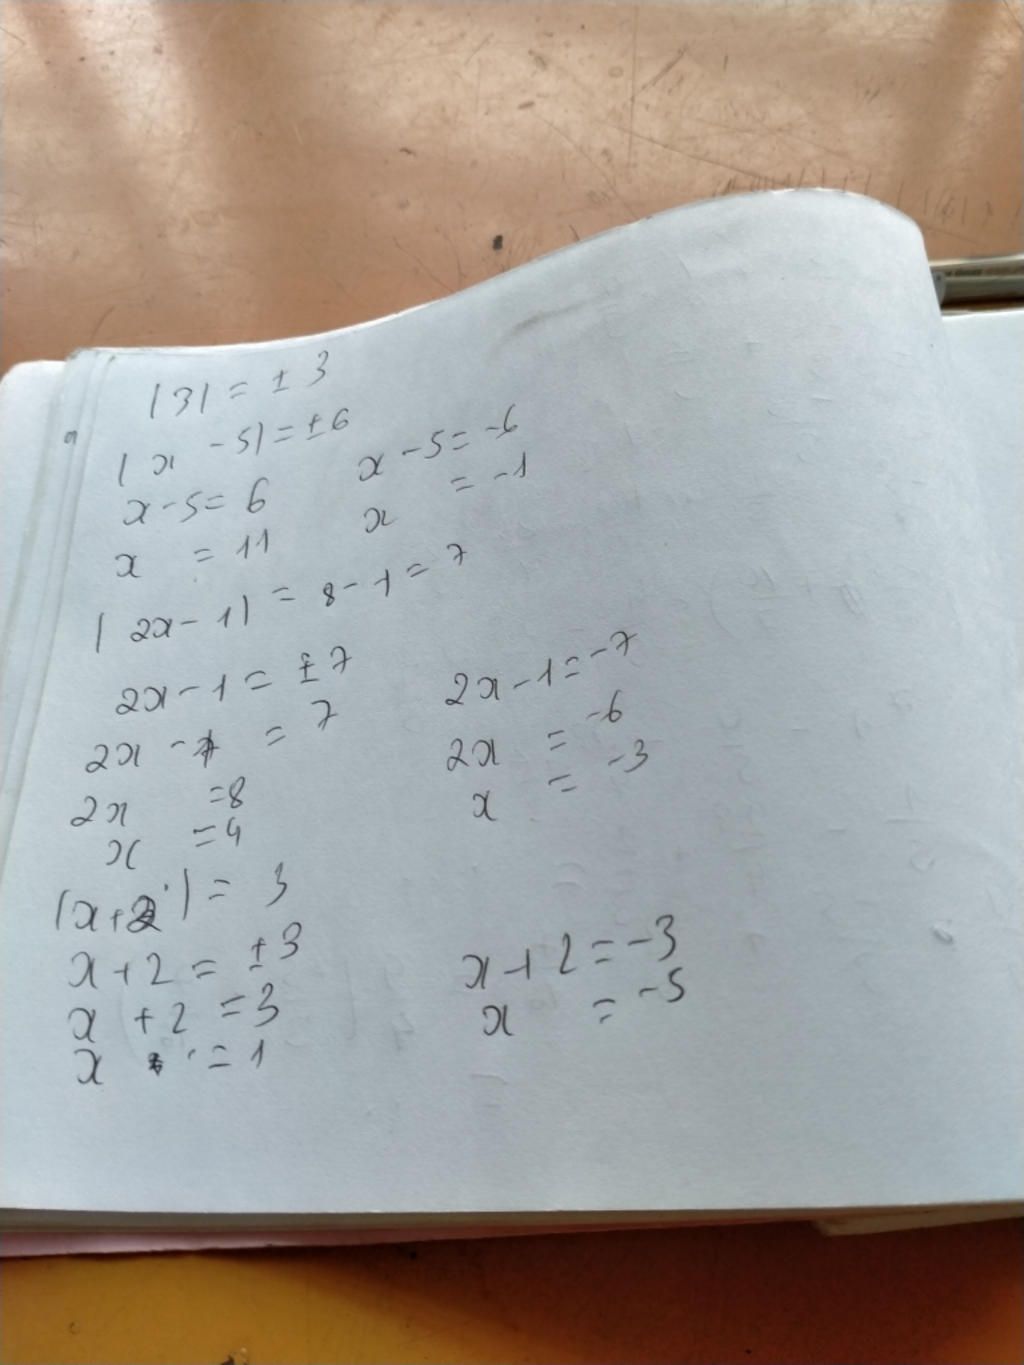 |3| = ± 3
|x - 5| = ± 6
x - 5 = 6 x - 5 = -6
x = 11 x = -1
|2x - 1| = 8 - 1 = 7
2x - 1 = ± 7 2x - 1 = -7
2x - 1 = 7 2x = -6
2x = 8 x = -3
x = 4
|x + 2| = 3
x + 2 = ± 3 x + 2 = -3
x + 2 = 3 x = -5
x = 1